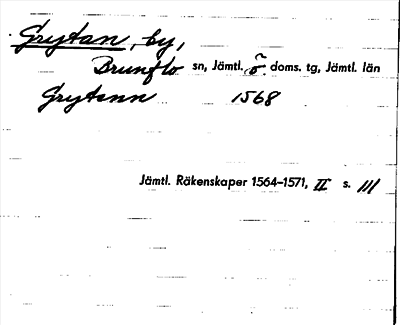 Grytan, by,
Brunflo sn, Jämtl. ö. doms. tg, Jämtl. län
Grytann 1568
Jämtl. Räkenskaper 1564–1571, II s. 111